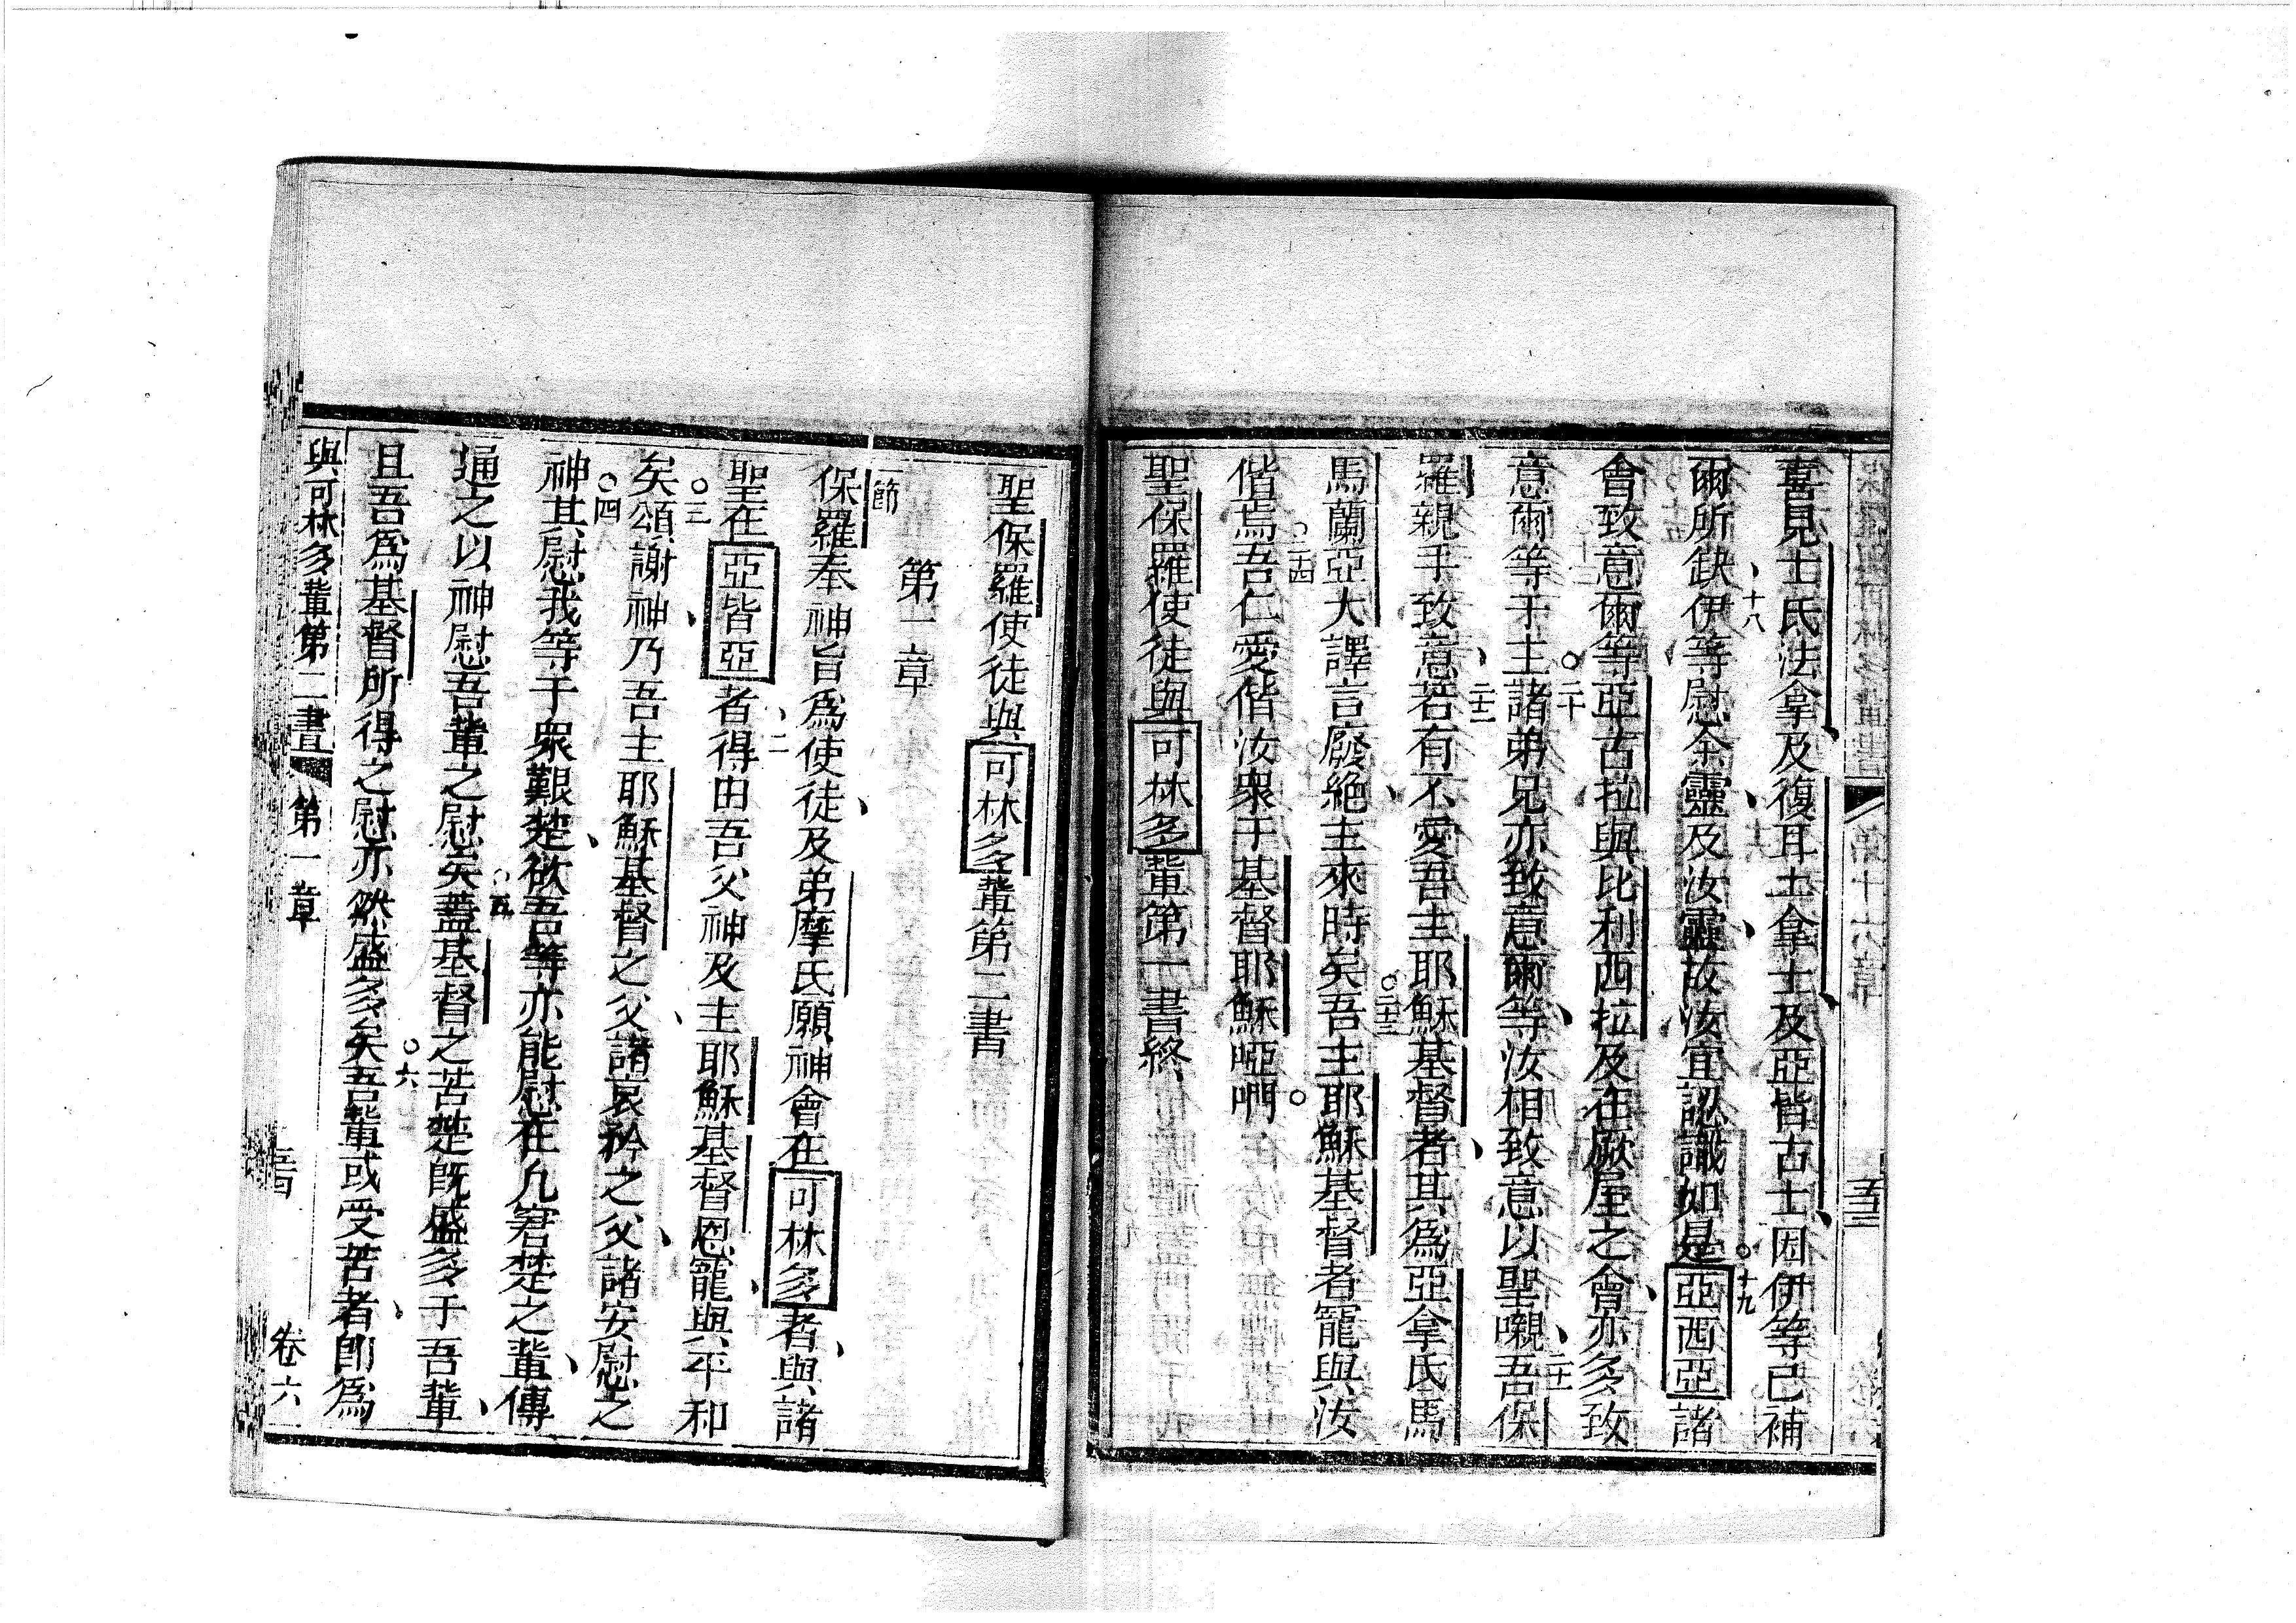 喜見士氏法拿及復耳土拿士及亞皆古士因伊等已補
爾所缺十八伊等慰余靈及汝靈故汝宜認識如是○十九亞西亞諸
會致意爾等亞古拉與比利西拉及在厥屋之會亦多致
意爾等于主○二十諸弟兄亦致意爾等汝相致意以聖嚫二十一吾保
羅親手致意二十二若有不愛吾主耶穌基督者其為亞拿氏馬
馬蘭亞大譯言廢絕主來時矣○二十三吾主耶穌基督者寵與汝
偕焉○二十四吾仁愛偕汝衆于基督耶穌啞㗎○
聖保羅使徒與可林多輩第一書終
聖保羅使徒與可林多輩第二書
第一章
一節保羅奉神旨為使徒及弟摩氏願神會在可林多者與諸
聖在亞皆亞者二得由吾父神及主耶穌基督恩寵與平和
矣○三頌謝神乃吾主耶穌基督之父諸哀矜之父諸安慰之
神○四其慰我等于衆艱楚欲吾等亦能慰在凡窘楚之輩傳
通之以神慰吾輩之慰矣○五蓋基督之苦楚既盛多于吾輩
且吾為基督所得之慰亦然盛多矣○六吾輩或受苦者即為
與可林多輩第二書 第一章 卷六